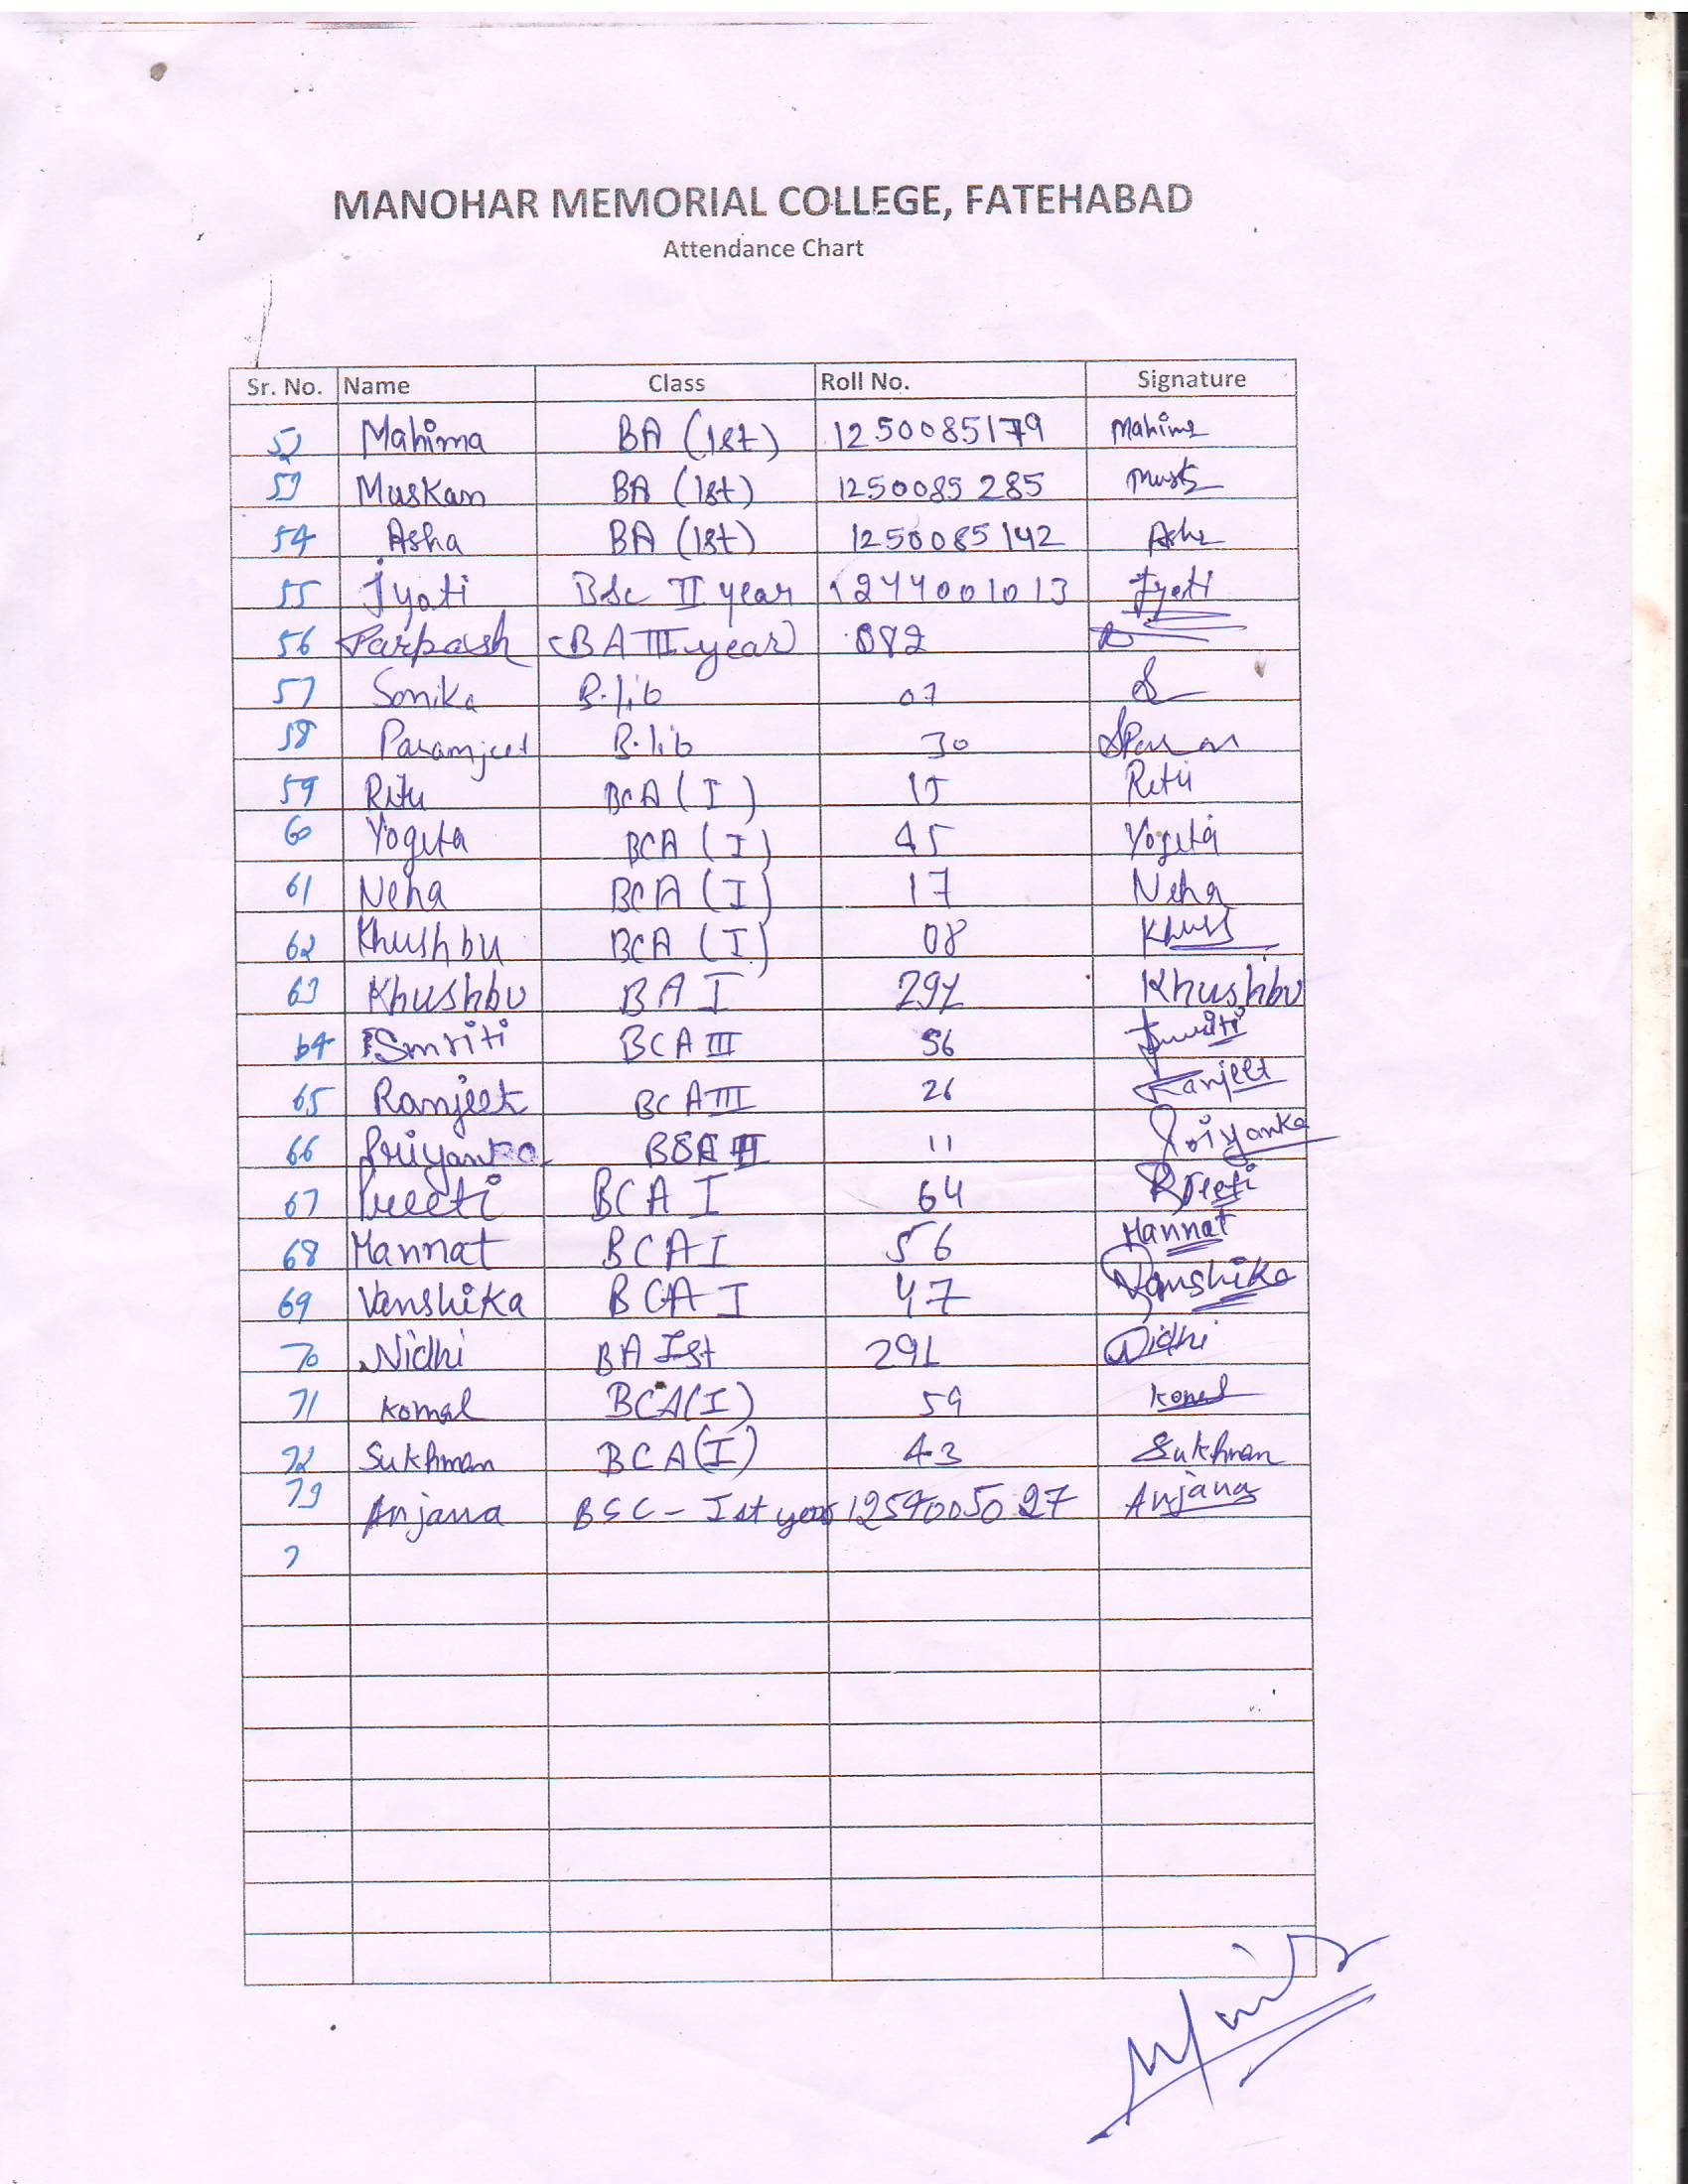 MANOHAR MEMORIAL COLLEGE, FATEHABAD
Attendance Chart
Sr. No. Name Class Roll No. Signature
52 Mahima BA (1st) 1250085179 Mahima
53 Muskan BA (1st) 1250085285
54 Asha BA (1st) 1250085142 Asha
55 Jyoti BSc II year 1244001013 Jyoti
56 Parkash BA III year 082
57 Sonika B.lib 07
58 Paramjeet B.lib 30
59 Ritu BCA (I) 15 Ritu
60 Yogita BCA (I) 45 Yogita
61 Neha BCA (I) 17 Neha
62 Khushbu BCA (I) 08
63 Khushbu BA I Khushbu
64 Smriti BCA III 56 Smriti
65 Ranjeet BCA III 26 Ranjeet
66 Priyanka 11 Priyanka
67 Preeti BCA I 64 Preeti
68 Mannat BCA I 56 Mannat
69 Vanshika BCA I 47 Vanshika
70 Nidhi BA Ist 291 Nidhi
71 Komal BCA(I) 59 Komal
72 Sukhman BCA(I) 43 Sukhman
73 Anjana BSC - Ist year 1254005027 Anjana
7